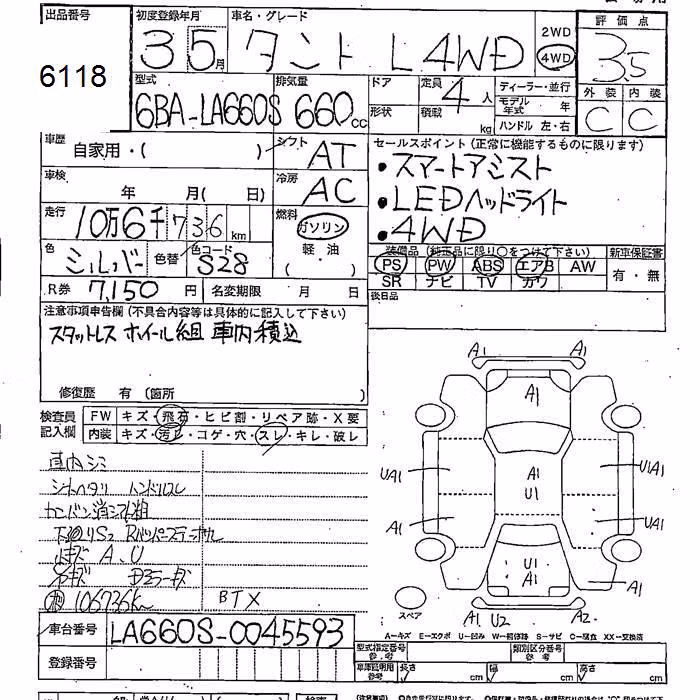 出品番号
6118
初度登録年月
3 5月
車名・グレード
タント L 4WD
2WD
4WD
評価点
3.5
外装 内装
C C
型式
6BA-LA660S
排気量
660cc
ドア
形状
定員
4人
積載
kg
ディーラー・並行
モデル年式 年
ハンドル 左・右
車歴
自家用・( )
シフト
AT
車検
年 月( 日)
冷房
AC
セールスポイント(正常に機能するものに限ります)
・スマートアシスト
・LEDヘッドライト
・4WD
走行
10万6千736km
燃料
ガソリン
軽・油
( )
色
シルバー
色替
色コード
S28
装備品(純正品に限り○をつけて下さい)
PS PW ABS エアB AW
SR ナビ TV カワ
新車保証書
有・無
R券
7,150円
名変期限 月 日
後日品
注意事項申告欄(不具合内容等は具体的に記入して下さい)
スタットレス ホイール組 車内積込
修復歴 有(箇所 )
検査員
記入欄
FW キズ・飛石・ヒビ割・リペア跡・X要
内装 キズ・汚レ・コゲ・穴・スレ・キレ・破レ
車内シミ
シートヘタリ ハンドルスレ
A、U
106736km
BTX
A1 A1
A1
UA1
A1
U1
UA1
A1
UA1
U1
A1
A1
スペア
A1 U2 A2
A-キズ E-エクボ U-凹み W-補修跡 S-サビ C-腐食 XX-交換済
車台番号
LA660S-0045593
登録番号
型式指定番号
参考
類別区分番号
参考
車庫証明用
参考
長さ cm
幅 cm
高さ cm